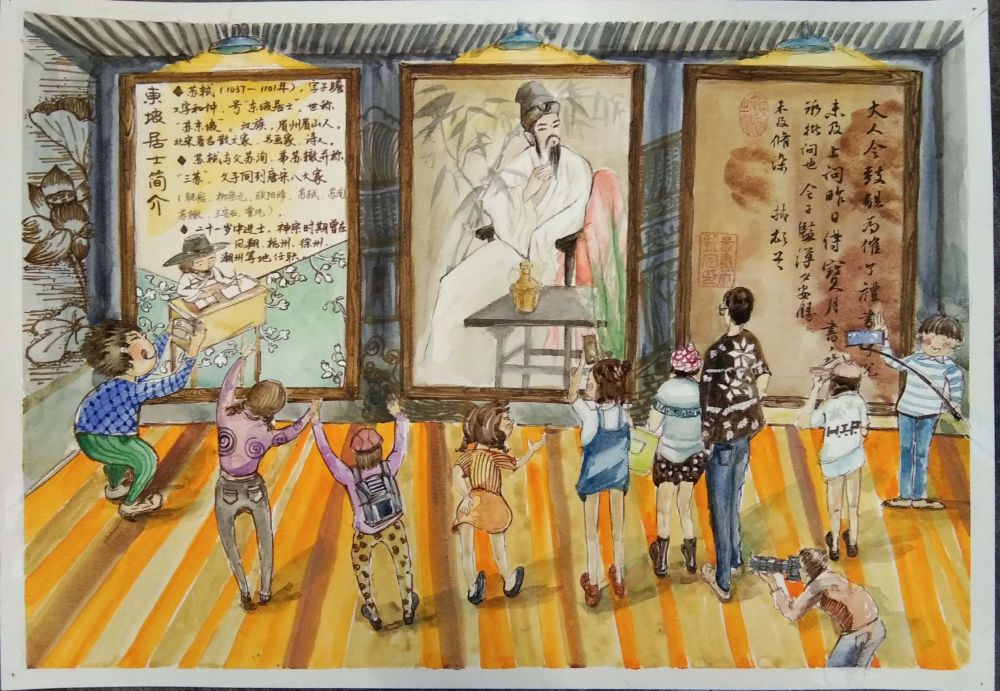 東坡居士简介
◆苏轼(1037—1101年),字子瞻
又字和仲,号"东坡居士",世称
"苏东坡"。汉族,眉州眉山人。
北宋著名散文家、书画家、诗人。
◆苏轼与父苏洵,弟苏辙并称
"三苏",父子同列唐宋八大家
(韩愈、柳宗元、欧阳修、苏轼、苏洵
苏辙、王安石、曾巩)。
◆二十一岁中进士,神宗时期曾在
凤翔、杭州、徐州、
湖州等地任职
大人令鼓砚为催了礼書
未及上问昨日得寶月書
承批问也 令子監簿必安勝
未及脩染 轼頓首
H.I.P.